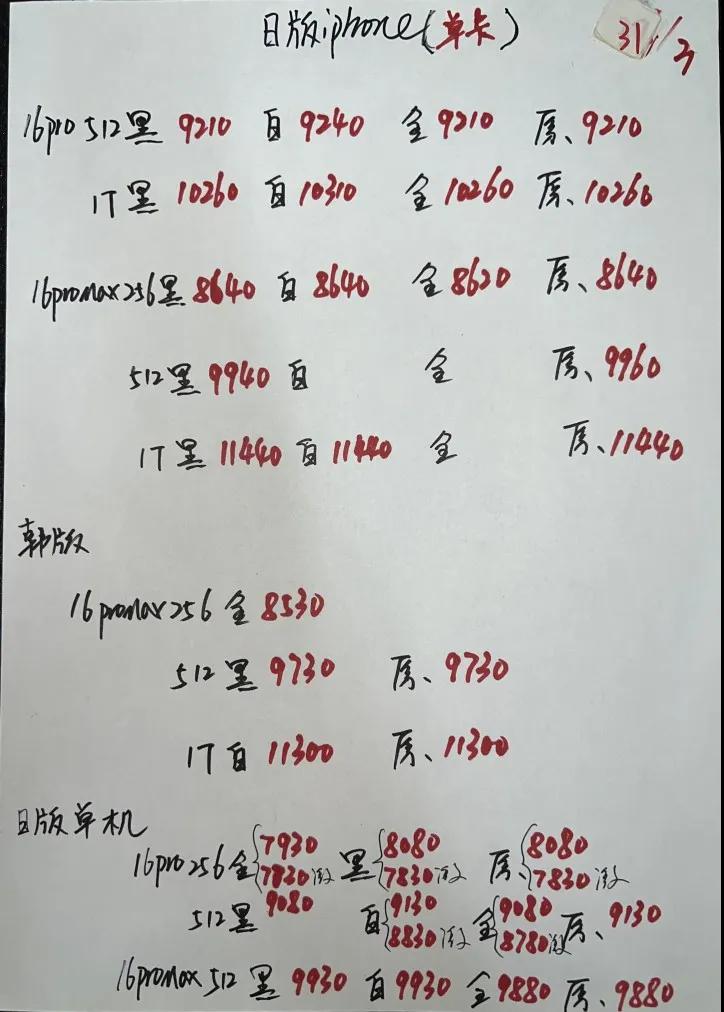 日版iphone(单卡) 31/3
16pro 512黑 9210 白 9240 金 9210 原、9210
1T黑 10260 白 10310 金 10260 原、10260
16promax256黑 8640 白 8640 金 8620 原、8640
512黑 9940 白 金 原、9960
1T 黑 11440 白 11440 金 原、11440
韩版
16promax256 金 8530
512黑 9730 原、9730
1T白 11300 原、11300
日版单机
16pro256金{7930 7830激 黑{8080 7830激 原{8080 7830激
512黑 9080 白{9130 8830激 金{9080 8780激 原、9130
16promax 512 黑 9930 白 9930 金 9880 原、9880